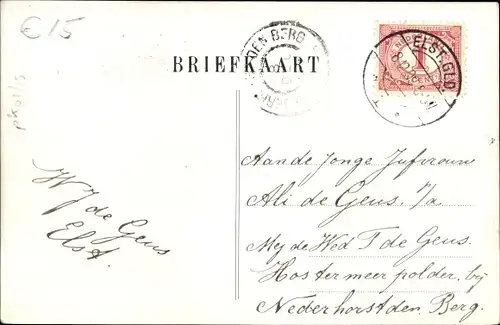 €15
pkal1s
DEN BERG
BRIEFKAART
ELST GLD
Aan de Jonge Jufvrouw
Ali de Geus. p/a
Mej de Wed T de Geus.
Hostermeer polder, bij
Nederhorst den Berg.
W J de Geus
Elst.